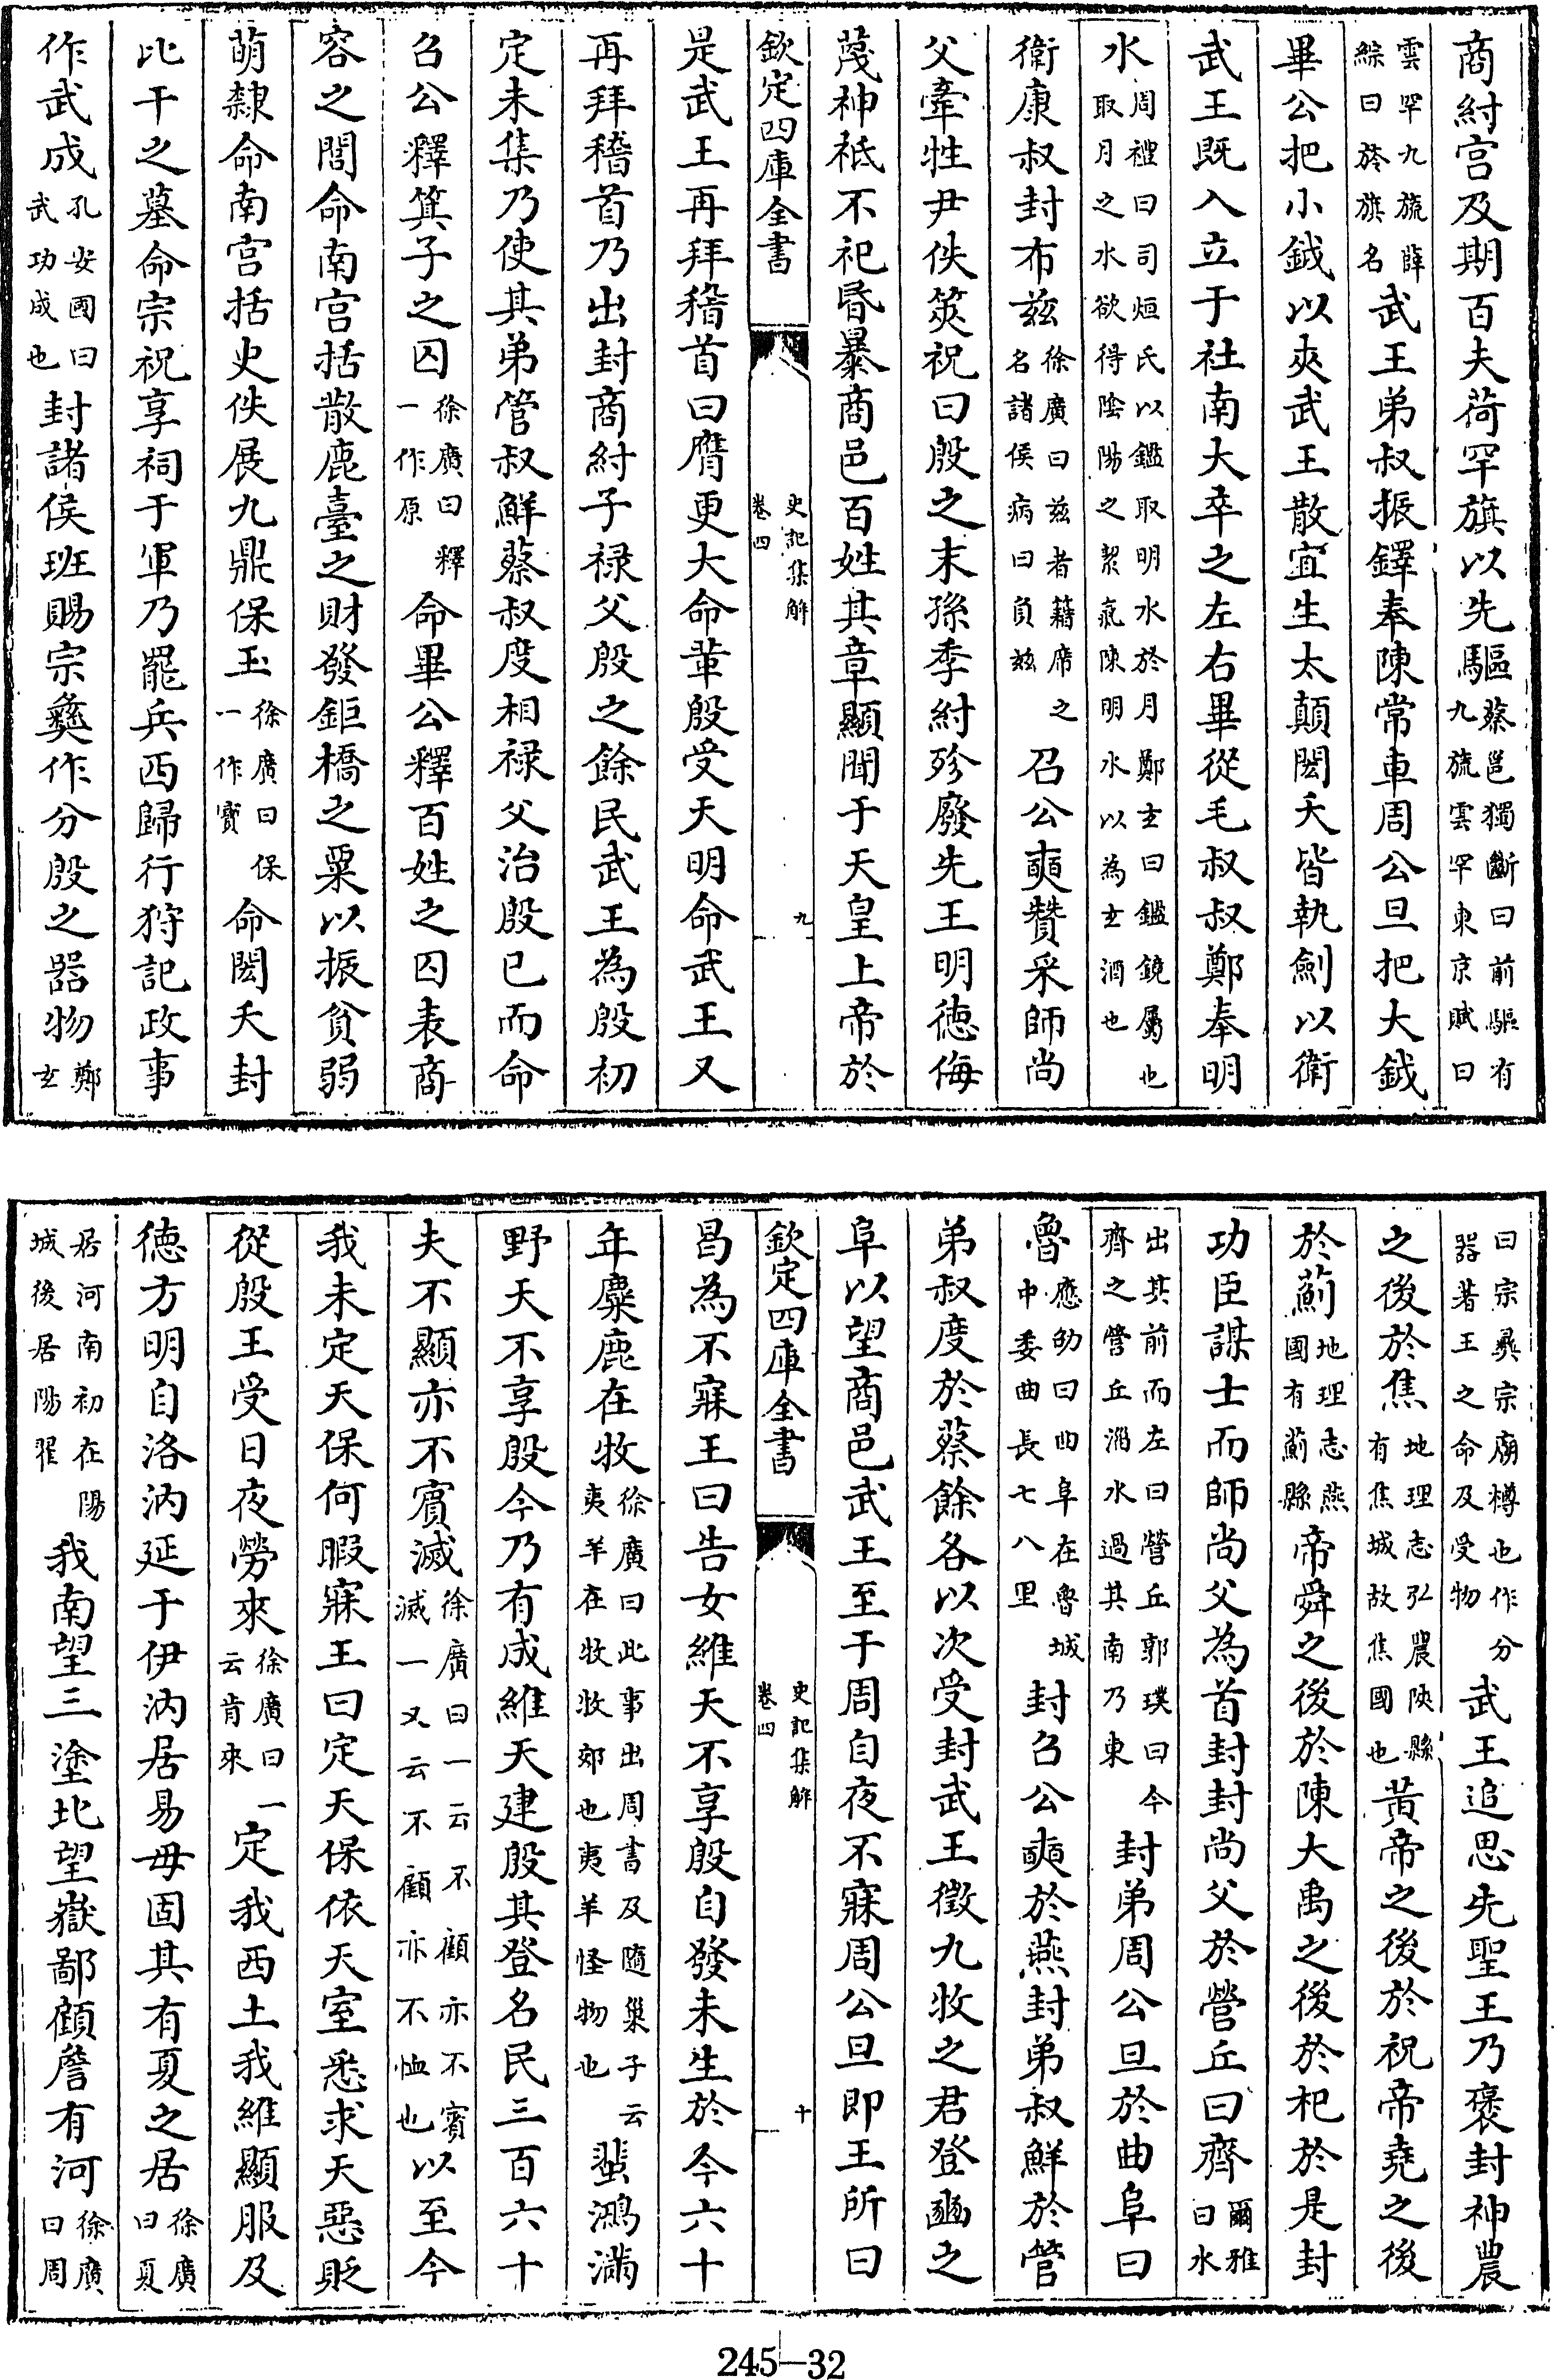 商紂宫及期百夫荷罕旗以先驅蔡邕獨斷曰前驅有九旒雲罕東京賦曰
雲罕九旒薛綜曰旒旗名武王弟叔振鐸奉陳常車周公旦把大鉞
畢公把小鉞以夾武王散宜生太顛閎夭皆執劍以衛
武王既入立于社南大卒之左右畢從毛叔叔鄭奉明
水周禮曰司烜氏以鑑取明水於月鄭玄曰鑑鏡屬也取月之水欲得陰陽之絜氣陳明水以為玄酒也
衛康叔封布兹徐廣曰兹者藉席之名諸侯病曰負兹召公奭贊采師尚
父牽牲尹佚筴祝曰殷之末孫季紂殄廢先王明德侮
蔑神祇不祀昬暴商邑百姓其章顯聞于天皇上帝於
欽定四庫全書 史記集解 卷四 九
是武王再拜稽首曰膺更大命革殷受天明命武王又
再拜稽首乃出封商紂子禄父殷之餘民武王為殷初
定未集乃使其弟管叔鮮蔡叔度相禄父治殷已而命
召公釋箕子之囚徐廣曰釋一作原命畢公釋百姓之囚表商
容之閭命南宫括散鹿臺之財發鉅橋之粟以振貧弱
萌隸命南宫括史佚展九鼎保玉徐廣曰保一作寳命閎夭封
比干之墓命宗祝享祠于軍乃罷兵西歸行狩記政事
作武成孔安國曰武功成也封諸侯班賜宗彝作分殷之器物鄭玄
曰宗彝宗廟樽也作分器著王之命及受物武王追思先聖王乃褒封神農
之後於焦地理志弘農陜縣有焦城故焦國也黄帝之後於祝帝堯之後
於薊地理志燕國有薊縣帝舜之後於陳大禹之後於杞於是封
功臣謀士而師尚父為首封封尚父於營丘曰齊爾雅曰水
出其前而左曰營丘郭璞曰今齊之營丘淄水過其南乃東封弟周公旦於曲阜曰
魯應劭曰曲阜在魯城中委曲長七八里封召公奭於燕封弟叔鮮於管
弟叔度於蔡餘各以次受封武王徵九牧之君登豳之
阜以望商邑武王至于周自夜不寐周公旦即王所曰
欽定四庫全書 史記集解 卷四 十
曷為不寐王曰告女維天不享殷自發未生於今六十
年麋鹿在牧徐廣曰此事出周書及隨巢子云夷羊在牧牧郊也夷羊怪物也蜚鴻滿
野天不享殷今乃有成維天建殷其登名民三百六十
夫不顯亦不賓滅徐廣曰一云不顧亦不賓滅一又云不顧亦不恤也以至今
我未定天保何暇寐王曰定天保依天室悉求天惡貶
從殷王受日夜勞來徐廣曰一云肯來定我西土我維顯服及
德方明自洛汭延于伊汭居易毋固其有夏之居徐廣曰夏
居河南初在陽城後居陽翟我南望三塗北望嶽鄙顧詹有河徐廣曰周
245-32